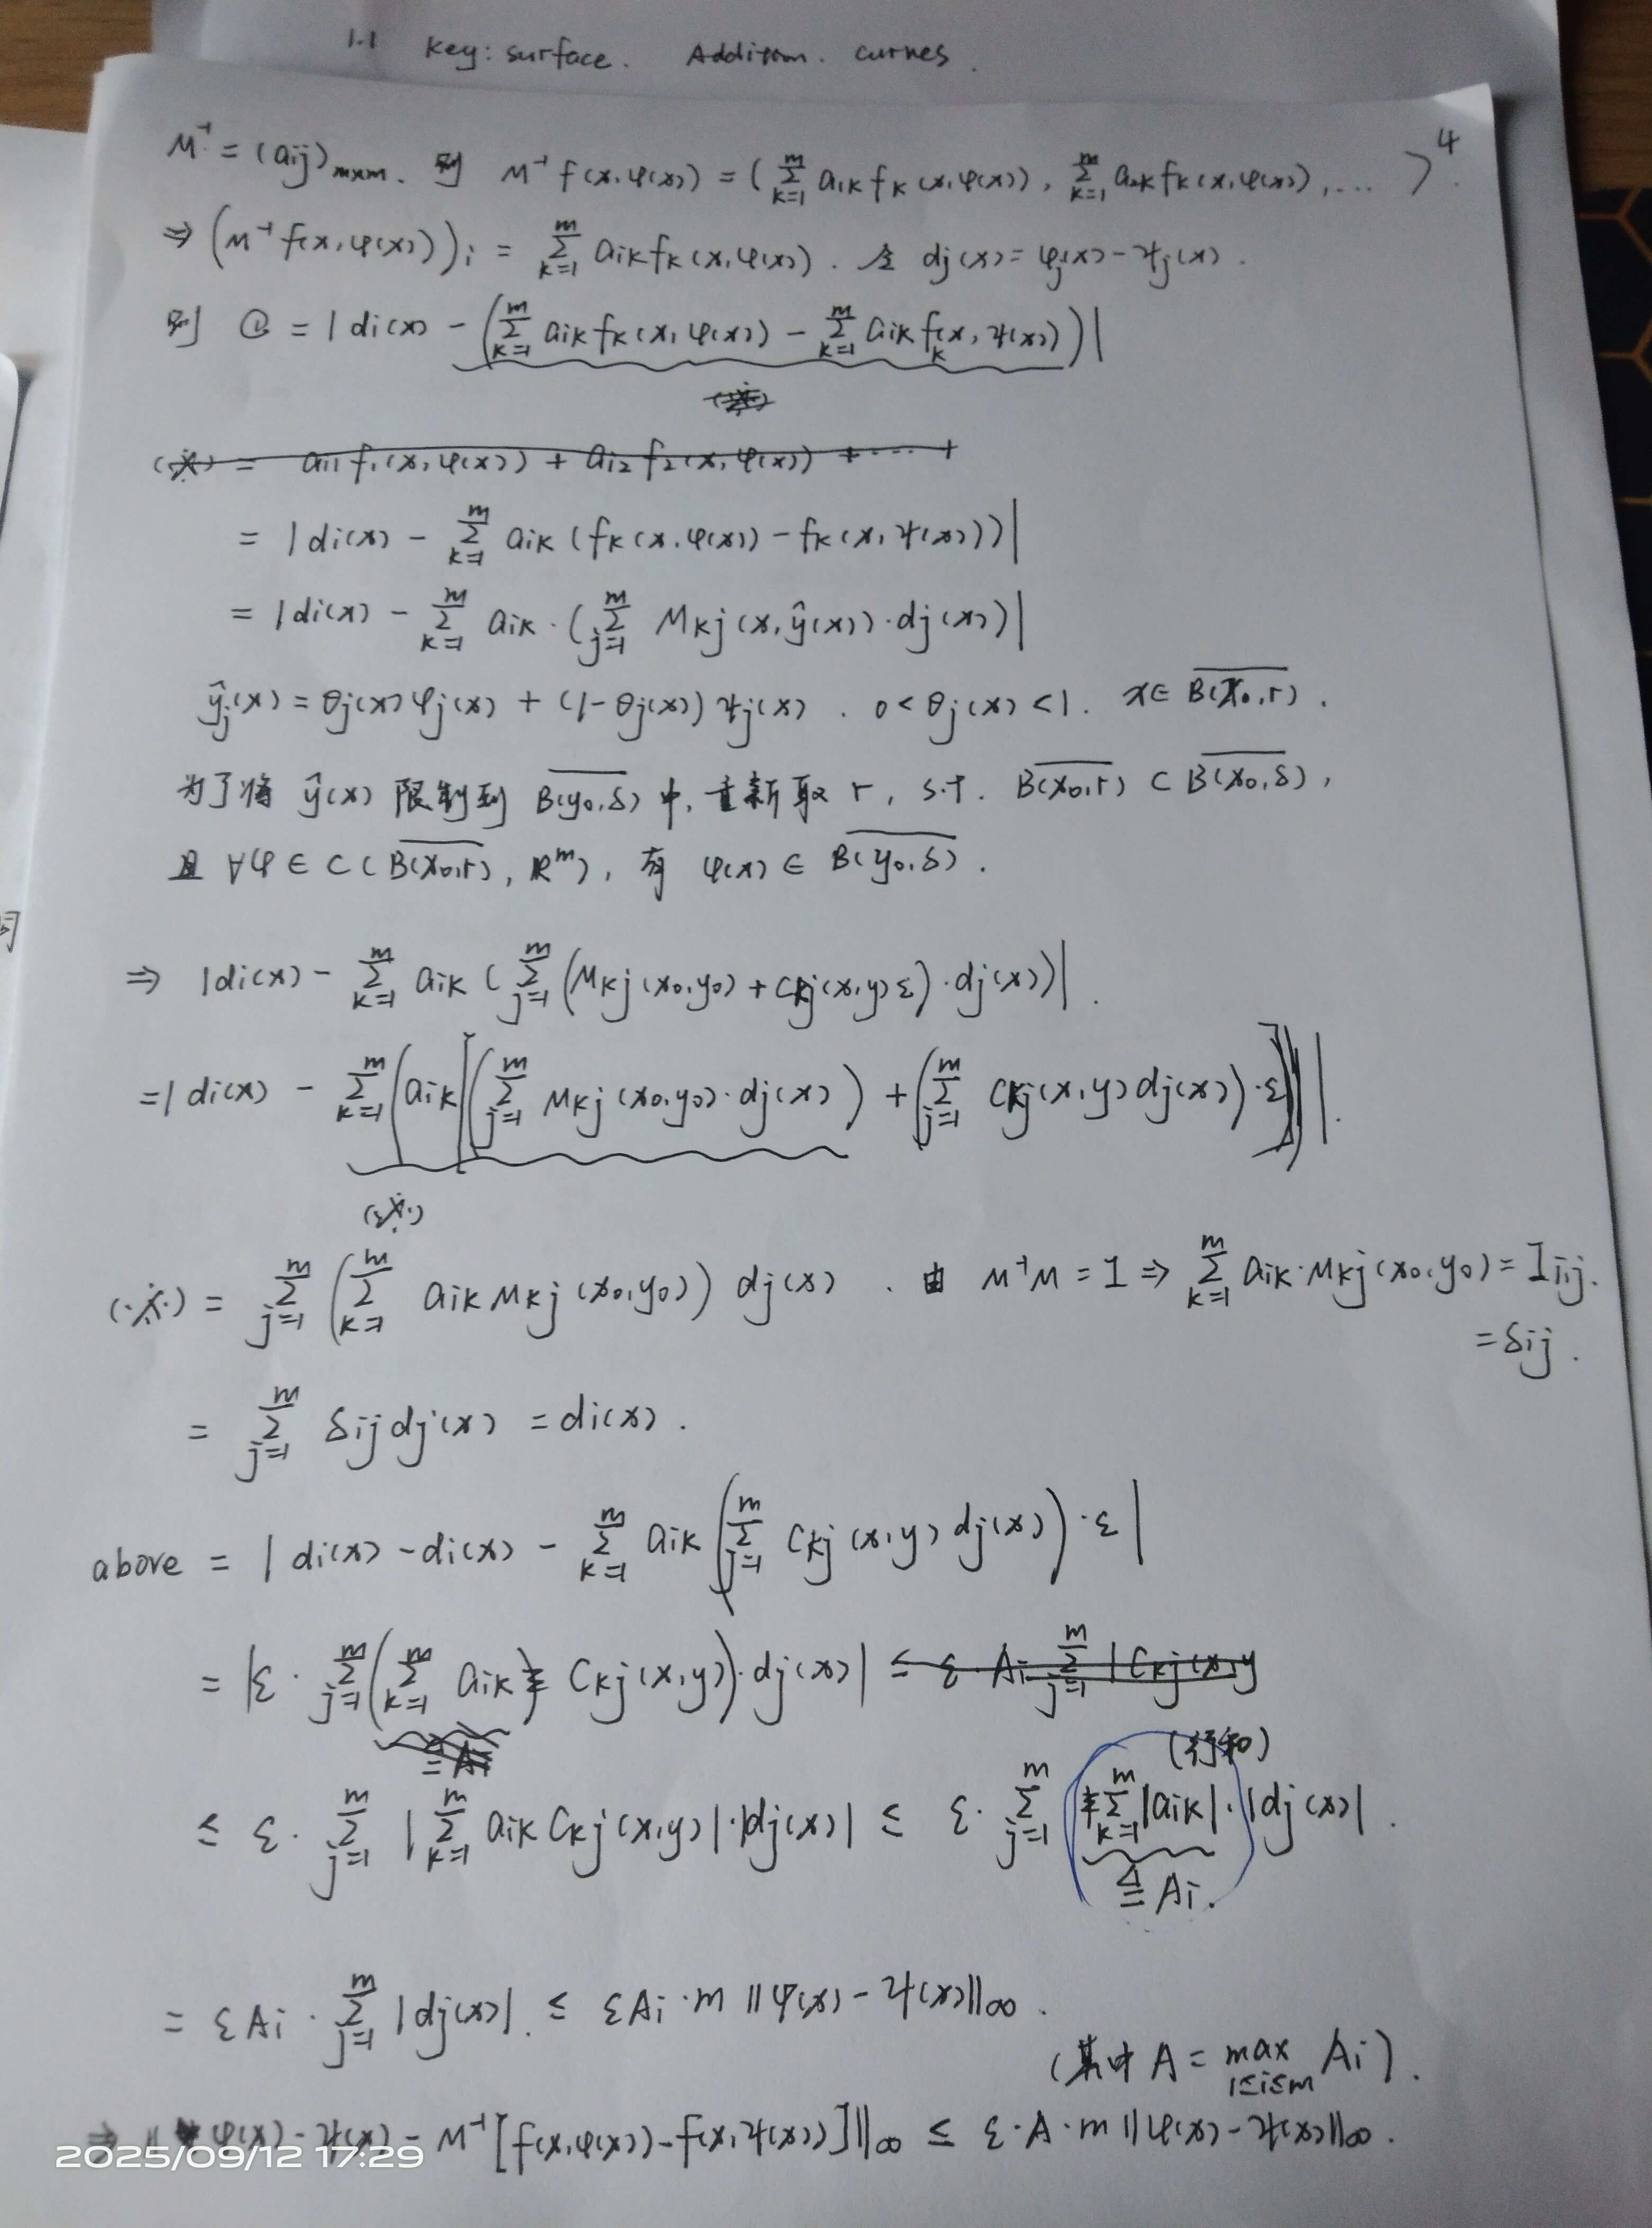 1.1 Key: surface. Addition. curves.
4
M⁻¹ = (aij)m×m. 则 M⁻¹ f(x,φ(x)) = (∑_{k=1}^{m} a1k fk(x,φ(x)), ∑_{k=1}^{m} a2k fk(x,φ(x)), ... )
⇒ (M⁻¹ f(x,φ(x)))i = ∑_{k=1}^{m} aik fk(x,φ(x)). 令 dj(x) = φj(x) - ψj(x).
则 ① = |di(x) - (∑_{k=1}^{m} aik fk(x,φ(x)) - ∑_{k=1}^{m} aik fk(x,ψ(x)))|
(※) = ai1 f1(x,φ(x)) + ai2 f2(x,φ(x)) + ... +
= |di(x) - ∑_{k=1}^{m} aik (fk(x,φ(x)) - fk(x,ψ(x)))|
= |di(x) - ∑_{k=1}^{m} aik · (∑_{j=1}^{m} Mkj(x,ŷ(x)) · dj(x))|
ŷj(x) = θj(x)φj(x) + (1-θj(x))ψj(x). 0<θj(x)<1. x∈B̅(x0,r).
为了将 ŷ(x) 限制到 B̅(y0,δ) 中, 重新取 r, s.t. B̅(x0,r) ⊂ B̅(x0,δ),
且 ∀φ ∈ C(B̅(x0,r), Rᵐ), 有 φ(x) ∈ B̅(y0,δ).
⇒ |di(x) - ∑_{k=1}^{m} aik (∑_{j=1}^{m} (Mkj(x0,y0) + Ckj(x,y)ε) · dj(x))|.
= |di(x) - ∑_{k=1}^{m} (aik [(∑_{j=1}^{m} Mkj(x0,y0) · dj(x)) + (∑_{j=1}^{m} Ckj(x,y) dj(x)) · ε])|.
(※)
(※) = ∑_{j=1}^{m} (∑_{k=1}^{m} aik Mkj(x0,y0)) dj(x). 由 M⁻¹M = I ⇒ ∑_{k=1}^{m} aik · Mkj(x0,y0) = Iij.
= δij.
= ∑_{j=1}^{m} δij dj(x) = di(x).
above = |di(x) - di(x) - ∑_{k=1}^{m} aik (∑_{j=1}^{m} Ckj(x,y) dj(x)) · ε|
= |ε · ∑_{j=1}^{m} (∑_{k=1}^{m} aik Ckj(x,y)) · dj(x)| ≤ ε · Ai ∑_{j=1}^{m} |Ckj(x,y
≜ Ai
(行和)
≤ ε · ∑_{j=1}^{m} |∑_{k=1}^{m} aik Ckj(x,y)| · |dj(x)| ≤ ε · ∑_{j=1}^{m} ∑_{k=1}^{m} |aik| · |dj(x)|.
≜ Ai.
= εAi · ∑_{j=1}^{m} |dj(x)|. ≤ εAi · m ‖φ(x) - ψ(x)‖∞.
(其中 A = max_{1≤i≤m} Ai).
⇒ ‖φ(x) - ψ(x) - M⁻¹[f(x,φ(x)) - f(x,ψ(x))]‖∞ ≤ ε · A · m ‖φ(x) - ψ(x)‖∞.
2025/09/12 17:29